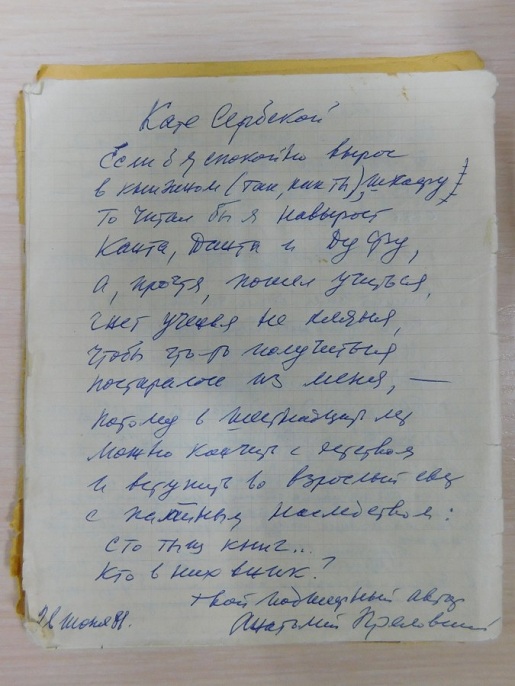 Кате Сербской
Если б я спокойно вырос
в книжном (так, как ты) шкафу
То читал бы я навырост
Канта, Данта и Ду Фу,
а, пройдя, пошел учиться,
учения не кляня,
чтобы что-то получиться
постаралось из меня, —
потому в шестнадцать лет
можно кончить с детством
и вступить во взрослый свет
с наследством:
сто тыщ книг...
Кто в них вник?
твой автор
Анатолий Преловский